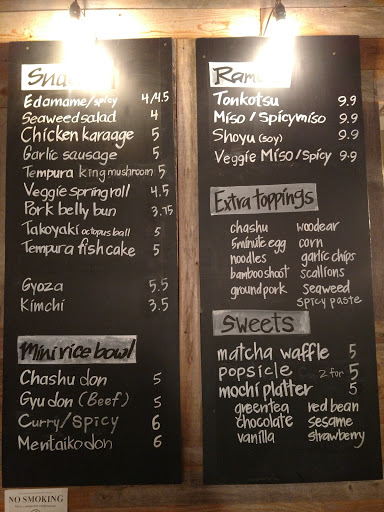 Edamame/spicy 4/4.5
Seaweed salad 4
Chicken karaage 5
Garlic sausage 5
Tempura king mushroom 5
Veggie spring roll 4.5
Pork belly bun 3.75
Takoyaki octopus ball 5
Tempura fish cake 5
Gyoza 5.5
Kimchi 3.5
Mini rice bowl
Chashu don 5
Gyu don (Beef) 5
Curry/spicy 6
Mentaiko don 6
NO SMOKING
Tonkotsu 9.9
Miso/Spicy miso 9.9
Shoyu (soy) 9.9
Veggie Miso/Spicy 9.9
Extra toppings
chashu woodear
5minute egg corn
noodles garlic chips
bamboo shoot scallions
ground pork seaweed
spicy paste
Sweets
matcha waffle 5
popsicle 2 for 5
mochi platter 5
greentea red bean
chocolate sesame
vanilla strawberry